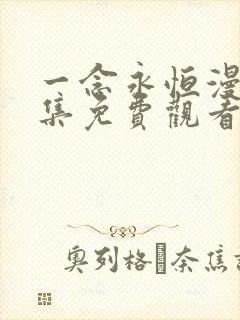 一念永恒漫
集免費觀看
奧列格·奈焦